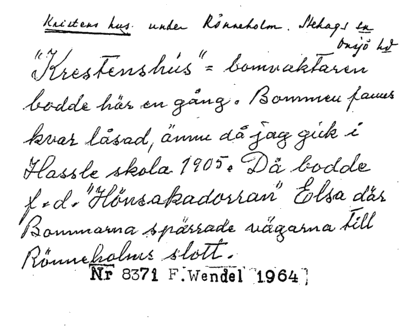 Kristens hus under Rönneholm. Stehags sn
Onsjö hd
"Krestenshús" = bomvaktaren
bodde här en gång. Bommen fanns
kvar låsad, ännu då jag gick i
Hassle skola 1905. Då bodde
f.d. "Hönsakadorran" Elsa där
Bommarna spärrade vägarna till
Rönneholms slott.
Nr 8371 F.Wendel 1964